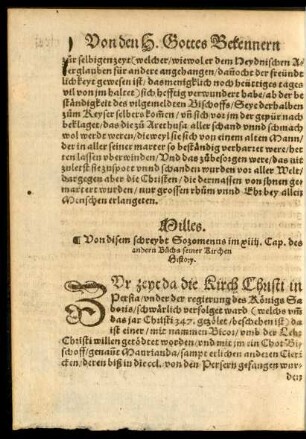 Von den H. Gottes Bekennern
zůr selbigen zeyt (welcher / wiewol er dem Heydnischen A=
berglauben für andere angehangen / dañocht der freündt
lichkeyt gewesen ist / das menigklich noch heüttiges tages
wil von jm haltet) sich hefftig verwundert habe / ab der be
ständigkeit des vilgemeldten Bischoffs / Seye derhalben
zům Keyser selbers kom̃en / vñ sich vor jm der gepür nach
beklaget / das die zů Arethusa aller schand vnnd schmach
wol werdt weren / dieweyl sie sich von einem alten Mann /
der in aller seiner marter so beständig verharret were / het=
ten lassen vberwinden / Vnd das zůbesorgen were / das nit
zuletst sie zu spott vnnd schanden wurden vor aller Welt /
dargegen aber die Christen / die dermassen von jhnen ge=
martert wurden / nur grossen rhům vnnd Ehr bey allen
Menschen erlangeten.
Milles.
¶ Von disem schreybt Sozomenus im xiiij. Cap. des
andern Bůchs seiner Kirchen
History.
ZVr zeyt da die Kirch Christi in
Persia / vnder der regierung des Königs Sa
boris / schwärlich verfolget ward (welchs vm̃
das jar Christi 347. gezölet / beschehen ist) da
ist einer / mit nammen Bicor / vmb der Lehr
Christi willen getödtet worden / vnd mit jm ein Chor Bi=
schoff / genañt Maurianda / sampt etlichen anderen Cleric
cken / deren biß in die ccl. von den Persern gefangen wur=
den